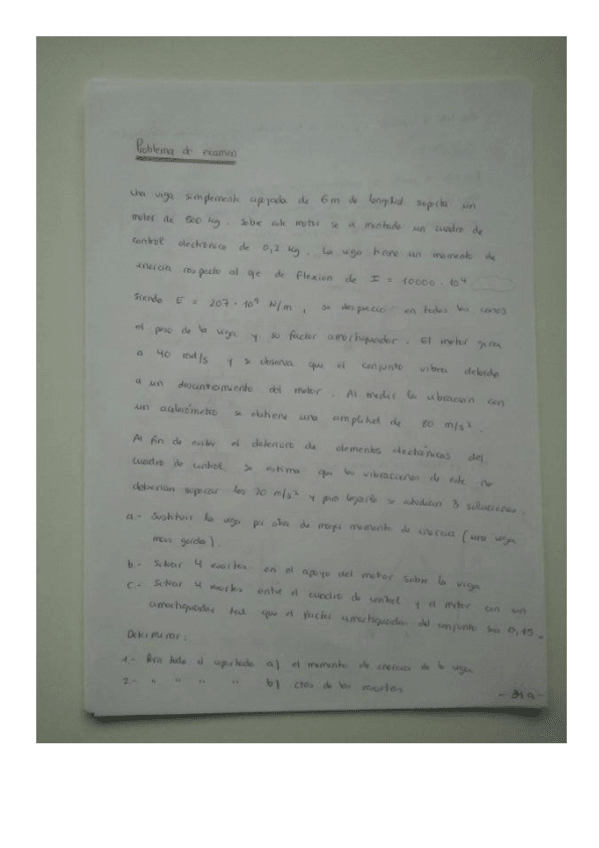 Problema de examen
Una viga simplemente apoyada de 6m de longitud soporta un
motor de 500 kg. Sobre este motor se a montado un cuadro de
control electrónico de 0,2 kg. La viga tiene un momento de
inercia respecto al eje de flexion de I = 10000 · 10⁴
siendo E = 207 · 10⁹ N/m, se desprecia en todos los casos
el peso de la viga y su factor amortiguador. El motor gira
a 40 rad/s y se observa que el conjunto vibra debido
a un descentramiento del motor. Al medir la vibracion con
un acelerómetro se obtiene una amplitud de 80 m/s².
Al fin de evitar el deterioro de elementos electrónicos del
cuadro de control se estima que las vibraciones de este no
deberían superar los 20 m/s² y para lograrlo se estudian 3 soluciones:
a.- Sustituir la viga por otra de mayor momento de inercia (una viga
mas gorda).
b.- Situar 4 muelles en el apoyo del motor sobre la viga
c.- Situar 4 muelles entre el cuadro de control y el motor con un
amortiguador tal que el factor amortiguador del conjunto sea 0,15.
Determinar:
1.- Para todo el apartado a) el momento de inercia de la viga
2.- " " " " b) ctes de los muelles